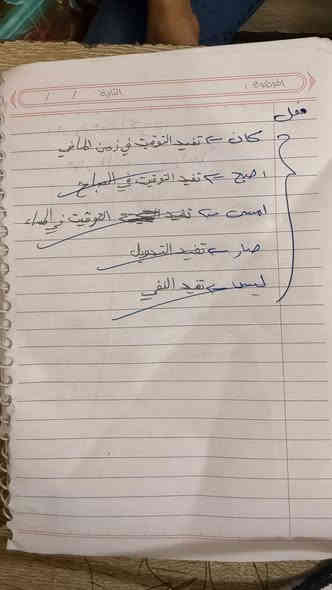 الموضوع : التاريخ / /
فعل
كان => تفيد التوقيت في زمن الماضي
اصبح => تفيد التوقيت في الصباح
امسى => تفيد التوقيت في المساء
صار => تفيد التحويل
ليس => تفيد النفي